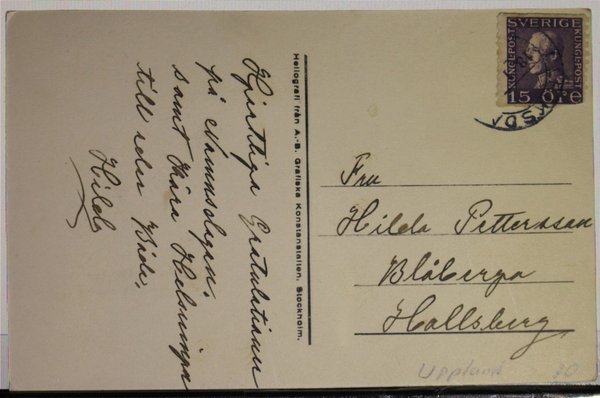 Hjertliga Gratulationer
på Namnsdagen.
samt Kära Helsningar
till eder Båda.
Hild
Heliografi från A.-B. Grafiska Konstanstalten, Stockholm.
SVERIGE
KUNGLPOST
KUNGLPOST
15 ÖRE
Fru
Hilda Pettersson
Blåberga
Hallsberg
Uppland 30